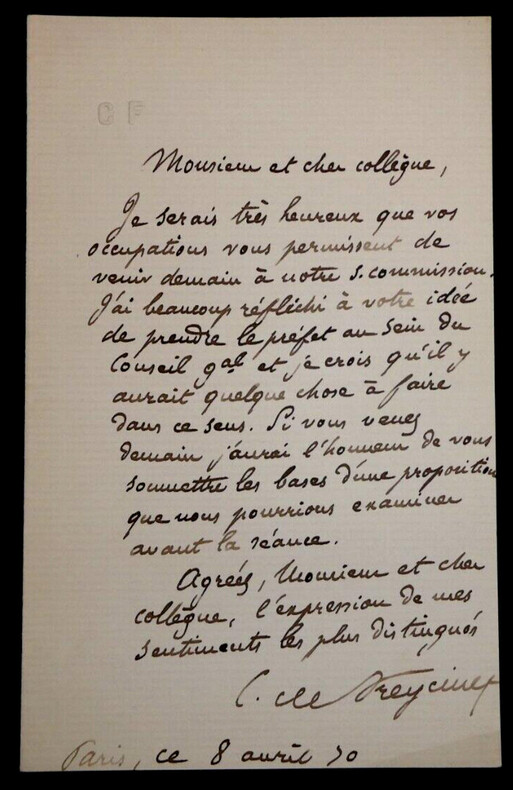 Monsieur et cher collègue,
Je serais très heureux que vos
occupations vous permissent de
venir demain à notre s. commission.
J'ai beaucoup réfléchi à votre idée
de prendre le préfet au sein du
Conseil gal et je crois qu'il y
aurait quelque chose à faire
dans ce sens. Si vous venez
demain j'aurai l'honneur de vous
soumettre les bases d'une proposition
que nous pourrions examiner
avant la séance.
Agréez, Monsieur et cher
collègue, l'expression de mes
sentiments les plus distingués
C. de Freycinet
Paris, ce 8 avril 70